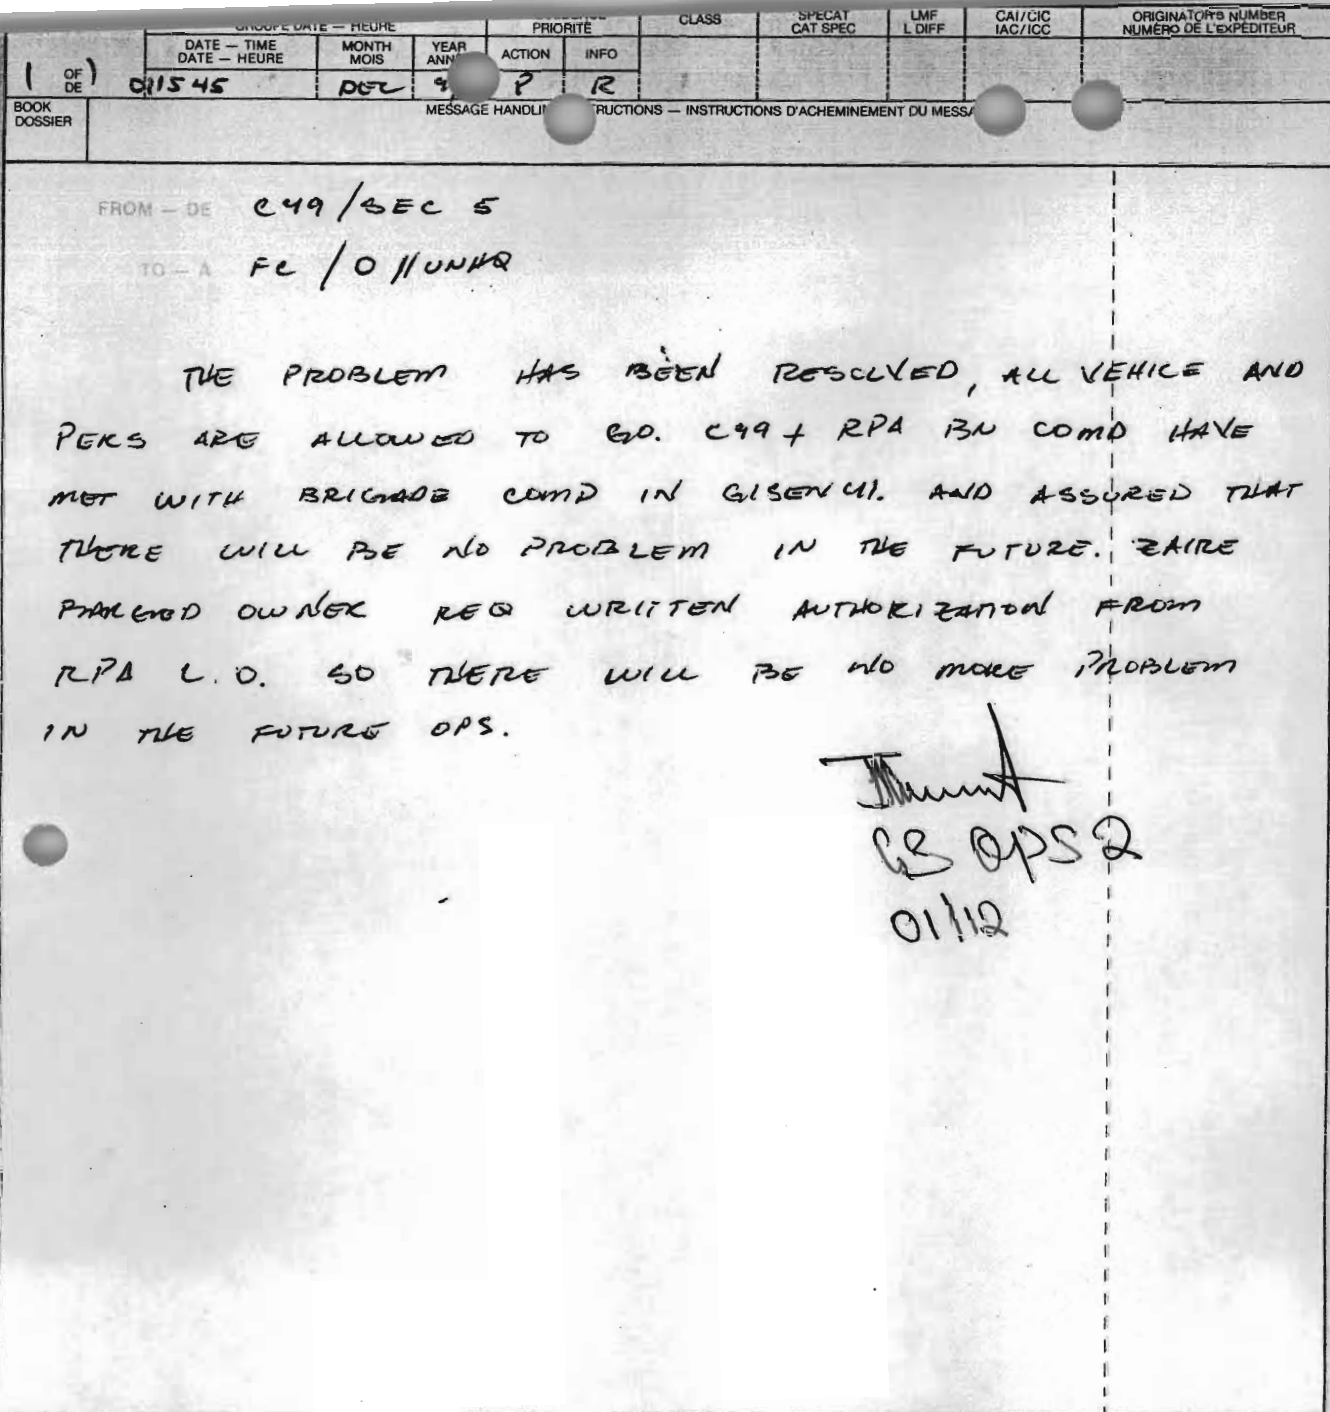 GROUPE DATE — HEURE
PRIORITÉ
CLASS
SPECAT
CAT SPEC
LMF
L DIFF
CAI/CIC
IAC/ICC
ORIGINATOR'S NUMBER
NUMÉRO DE L'EXPÉDITEUR
DATE — TIME
DATE — HEURE
MONTH
MOIS
YEAR
ACTION
INFO
1 OF
DE )
011545 DEC 9 P R
BOOK
DOSSIER
MESSAGE HANDLIN RUCTIONS — INSTRUCTIONS D'ACHEMINEMENT DU MESSA
FROM — DE C49/SEC 5
TO — A FC / O // UNHQ
THE PROBLEM HAS BEEN RESOLVED, ALL VEHICE AND
PERS ARE ALLOWED TO GO. C49 + RPA BN COMD HAVE
MET WITH BRIGADE COMD IN GISENYI. AND ASSURED THAT
THERE WILL BE NO PROBLEM IN THE FUTURE. ZAIRE
OWNER REQ WRIITEN AUTHORIZATION FROM
RPA L.O. SO THERE WILL BE NO MORE PROBLEM
IN THE FUTURE OPS.
OPS 2
01/12